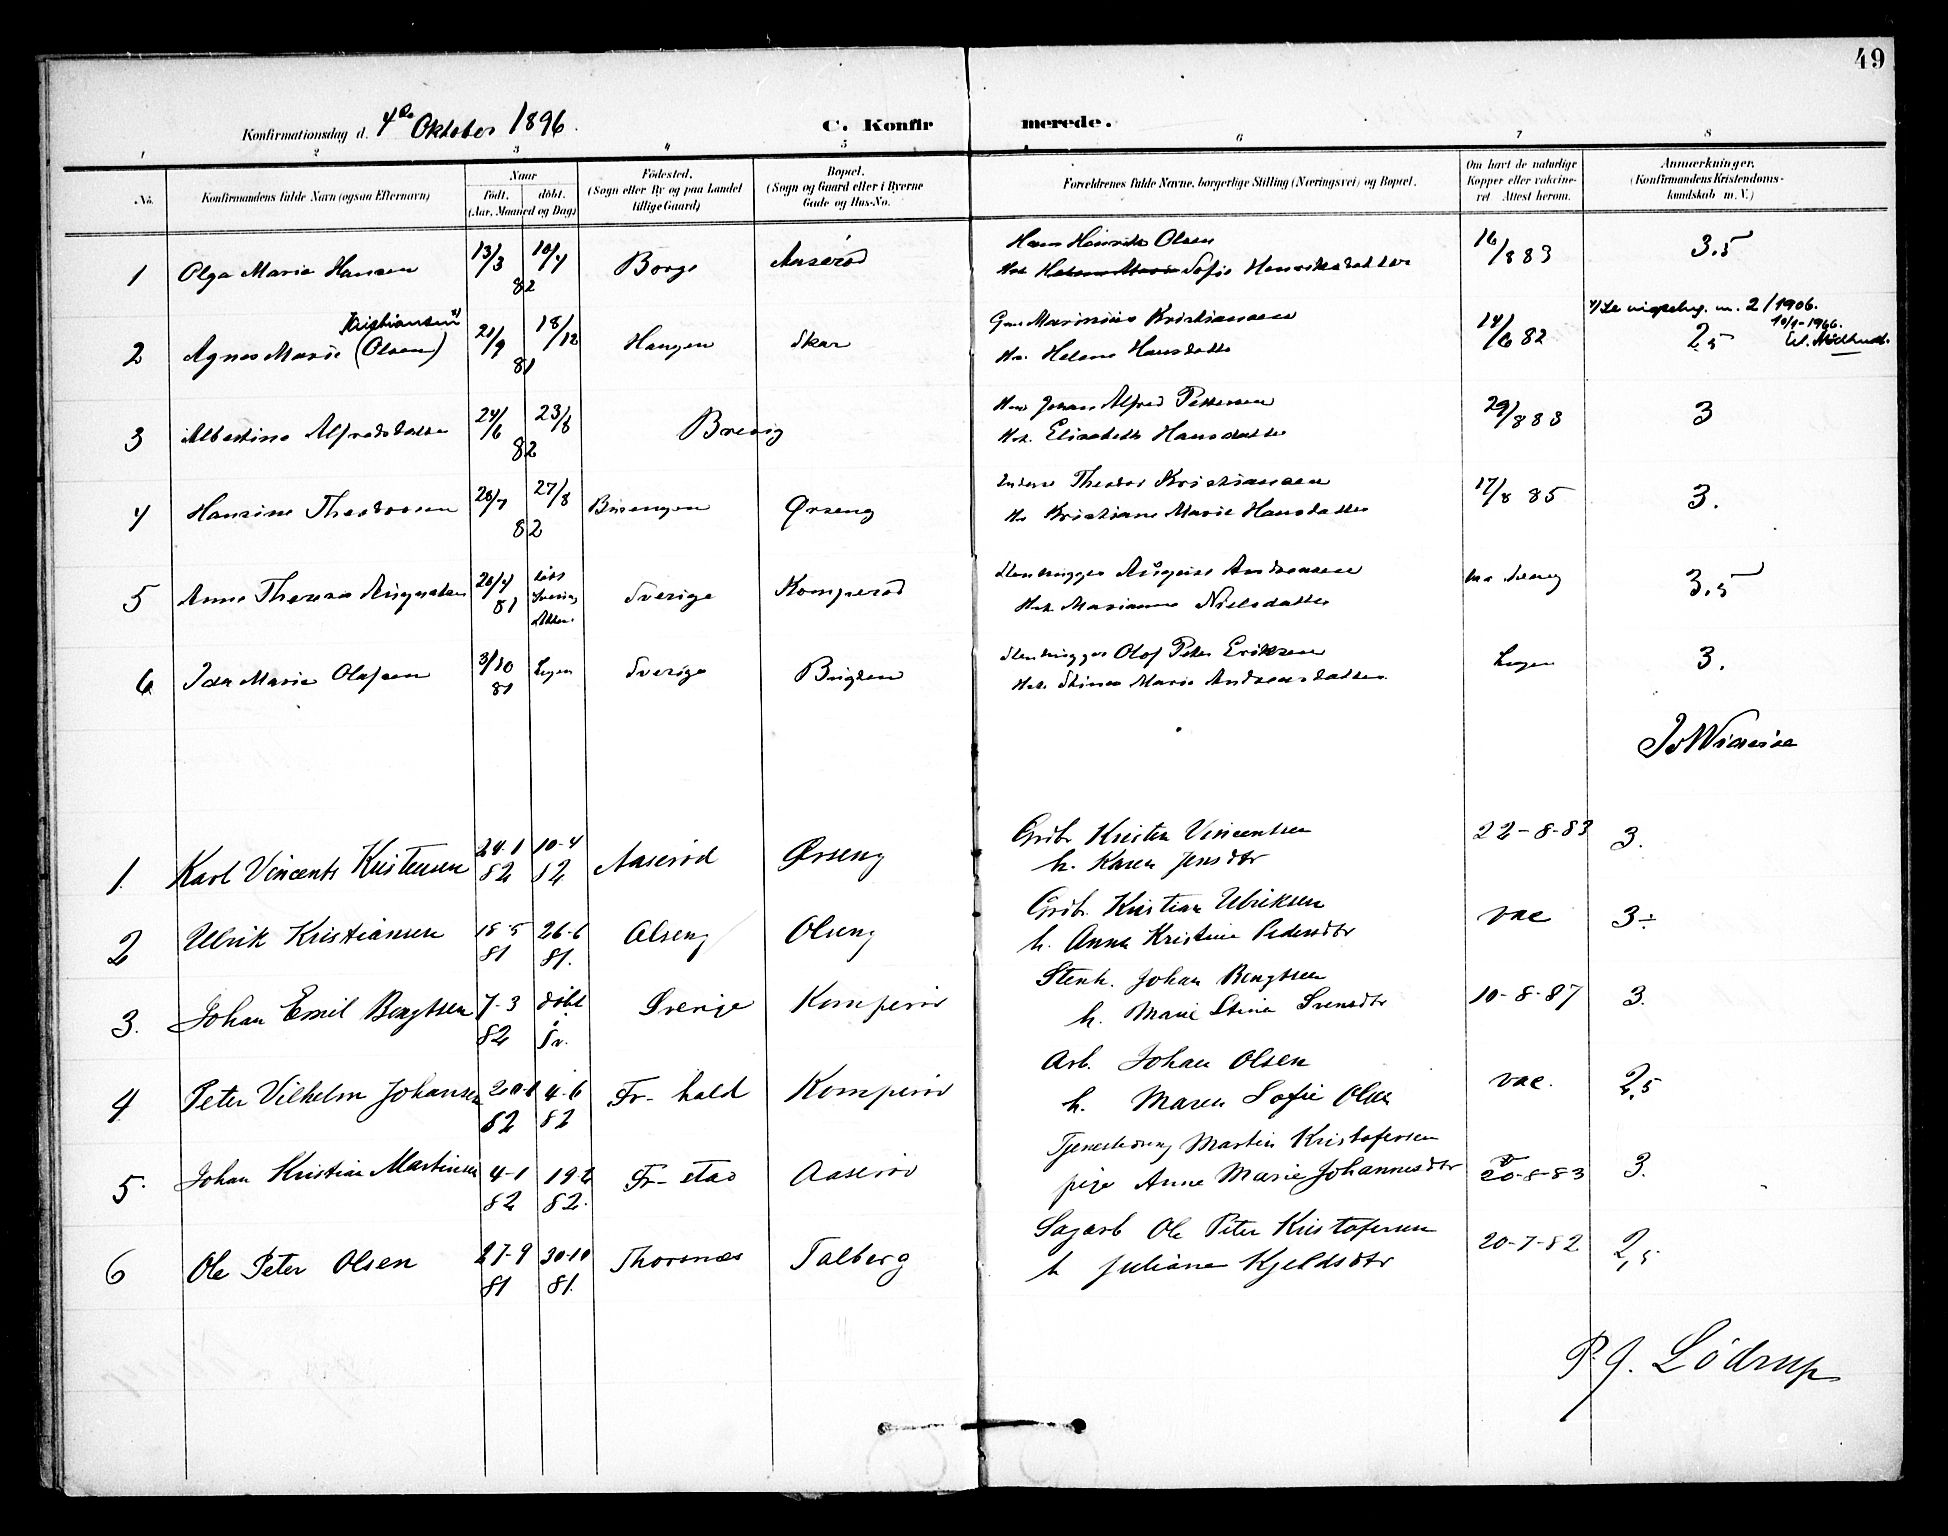 49
Konfirmationsdag d. 4de Oktober 1896.
C. Konfirmerede.
1 2 3 4 5 6 7 8
No.
Konfirmandens fulde Navn (ogsaa Efternavn)
Naar
født, døbt.
(Aar, Maaned og Dag)
Fødested.
(Sogn eller By og paa Landet
tillige Gaard)
Bopæl.
(Sogn og Gaard eller i Byerne
Gade og Hus-No.
Forældrenes fulde Navne, borgerlige Stilling (Næringsvei) og Bopæl.
Om havt de naturlige
Kopper eller vakcine-
ret. Attest herom.
Anmærkninger.
(Konfirmandens Kristendoms-
kundskab m. V.)
1 Olga Marie Hansen 13/3 10/4 82 Borge Aaserød
Hans Henrik Olsen
Sofie Henriksdatter
16/8 83 3.5
Kristiansen
2 Agnes Marie (Olsen) 21/9 18/12 81 Haugen Skar
Marinius Kristiansen
Helene Hansdatter
14/6 82 2,5
2/1906.
10/1-1966.
3 Albertine Alfredsdatter 24/6 23/8 82 Brevig
Johan Alfred Pettersen
Elisabeth Hansdatter
29/8 83 3
4 Hansine Theodorsen 28/7 27/8 82 Ørseng
Theodor Kristiansen
Kristiane Marie Hansdatter
17/8 85 3.
5 Anne Therese Augustsen 26/4 81 Sverige Komperød
Stenhugger August Andreasen
Marianne Nielsdatter
3.5
6 Ida Marie Olafsen 3/10 81 Ingen Sverige
Stenhugger Olof Peter Eriksen
Stina Marie Andreasdatter
Ingen 3.
1. Karl Vincents Kristensen 24-1 82 10-4 82 Aaserød Ørseng
Grdbr. Kristen Vincentsen
h. Karen Jensdtr
22-8-83 3.
2 Ulrik Kristiansen 18-5 81 26-6 81. Olseng Olseng
Grdbr. Kristian Ulriksen
h. Anna Kristine Pedersdtr
vac 3÷
3. Johan Emil Bengtsen 7-3 82 døbt i Sv. Sverige Komperød
Stenh. Johan Bengtsen
h. Marie Stina Svensdtr
10-8-87 3.
4 Peter Vilhelm Johansen 82 4-6 82 Fr-hald Komperød
Arb. Johan Olsen
h. Maren Sofie Olsen
vac. 2,5
5. Johan Kristian Martinsen 4-1 82 19-2 82. Fr-stad Aaserød
Tjenestedreng Martin Kristofersen
pige Anne Marie Johannesdtr
20-8-83 3.
6 Ole Peter Olsen 27-9 81 30-10 81. Thorsnæs Talberg
Sagarb Ole Peter Kristofersen
h Juliane Kjeldsdtr
20-7-82 2,5
P. J. Lødrup